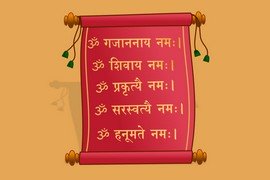 ॐ गजाननाय नमः।
ॐ शिवाय नमः।
ॐ प्रकृत्यै नमः।
ॐ सरस्वत्यै नमः।
ॐ हनूमते नमः।